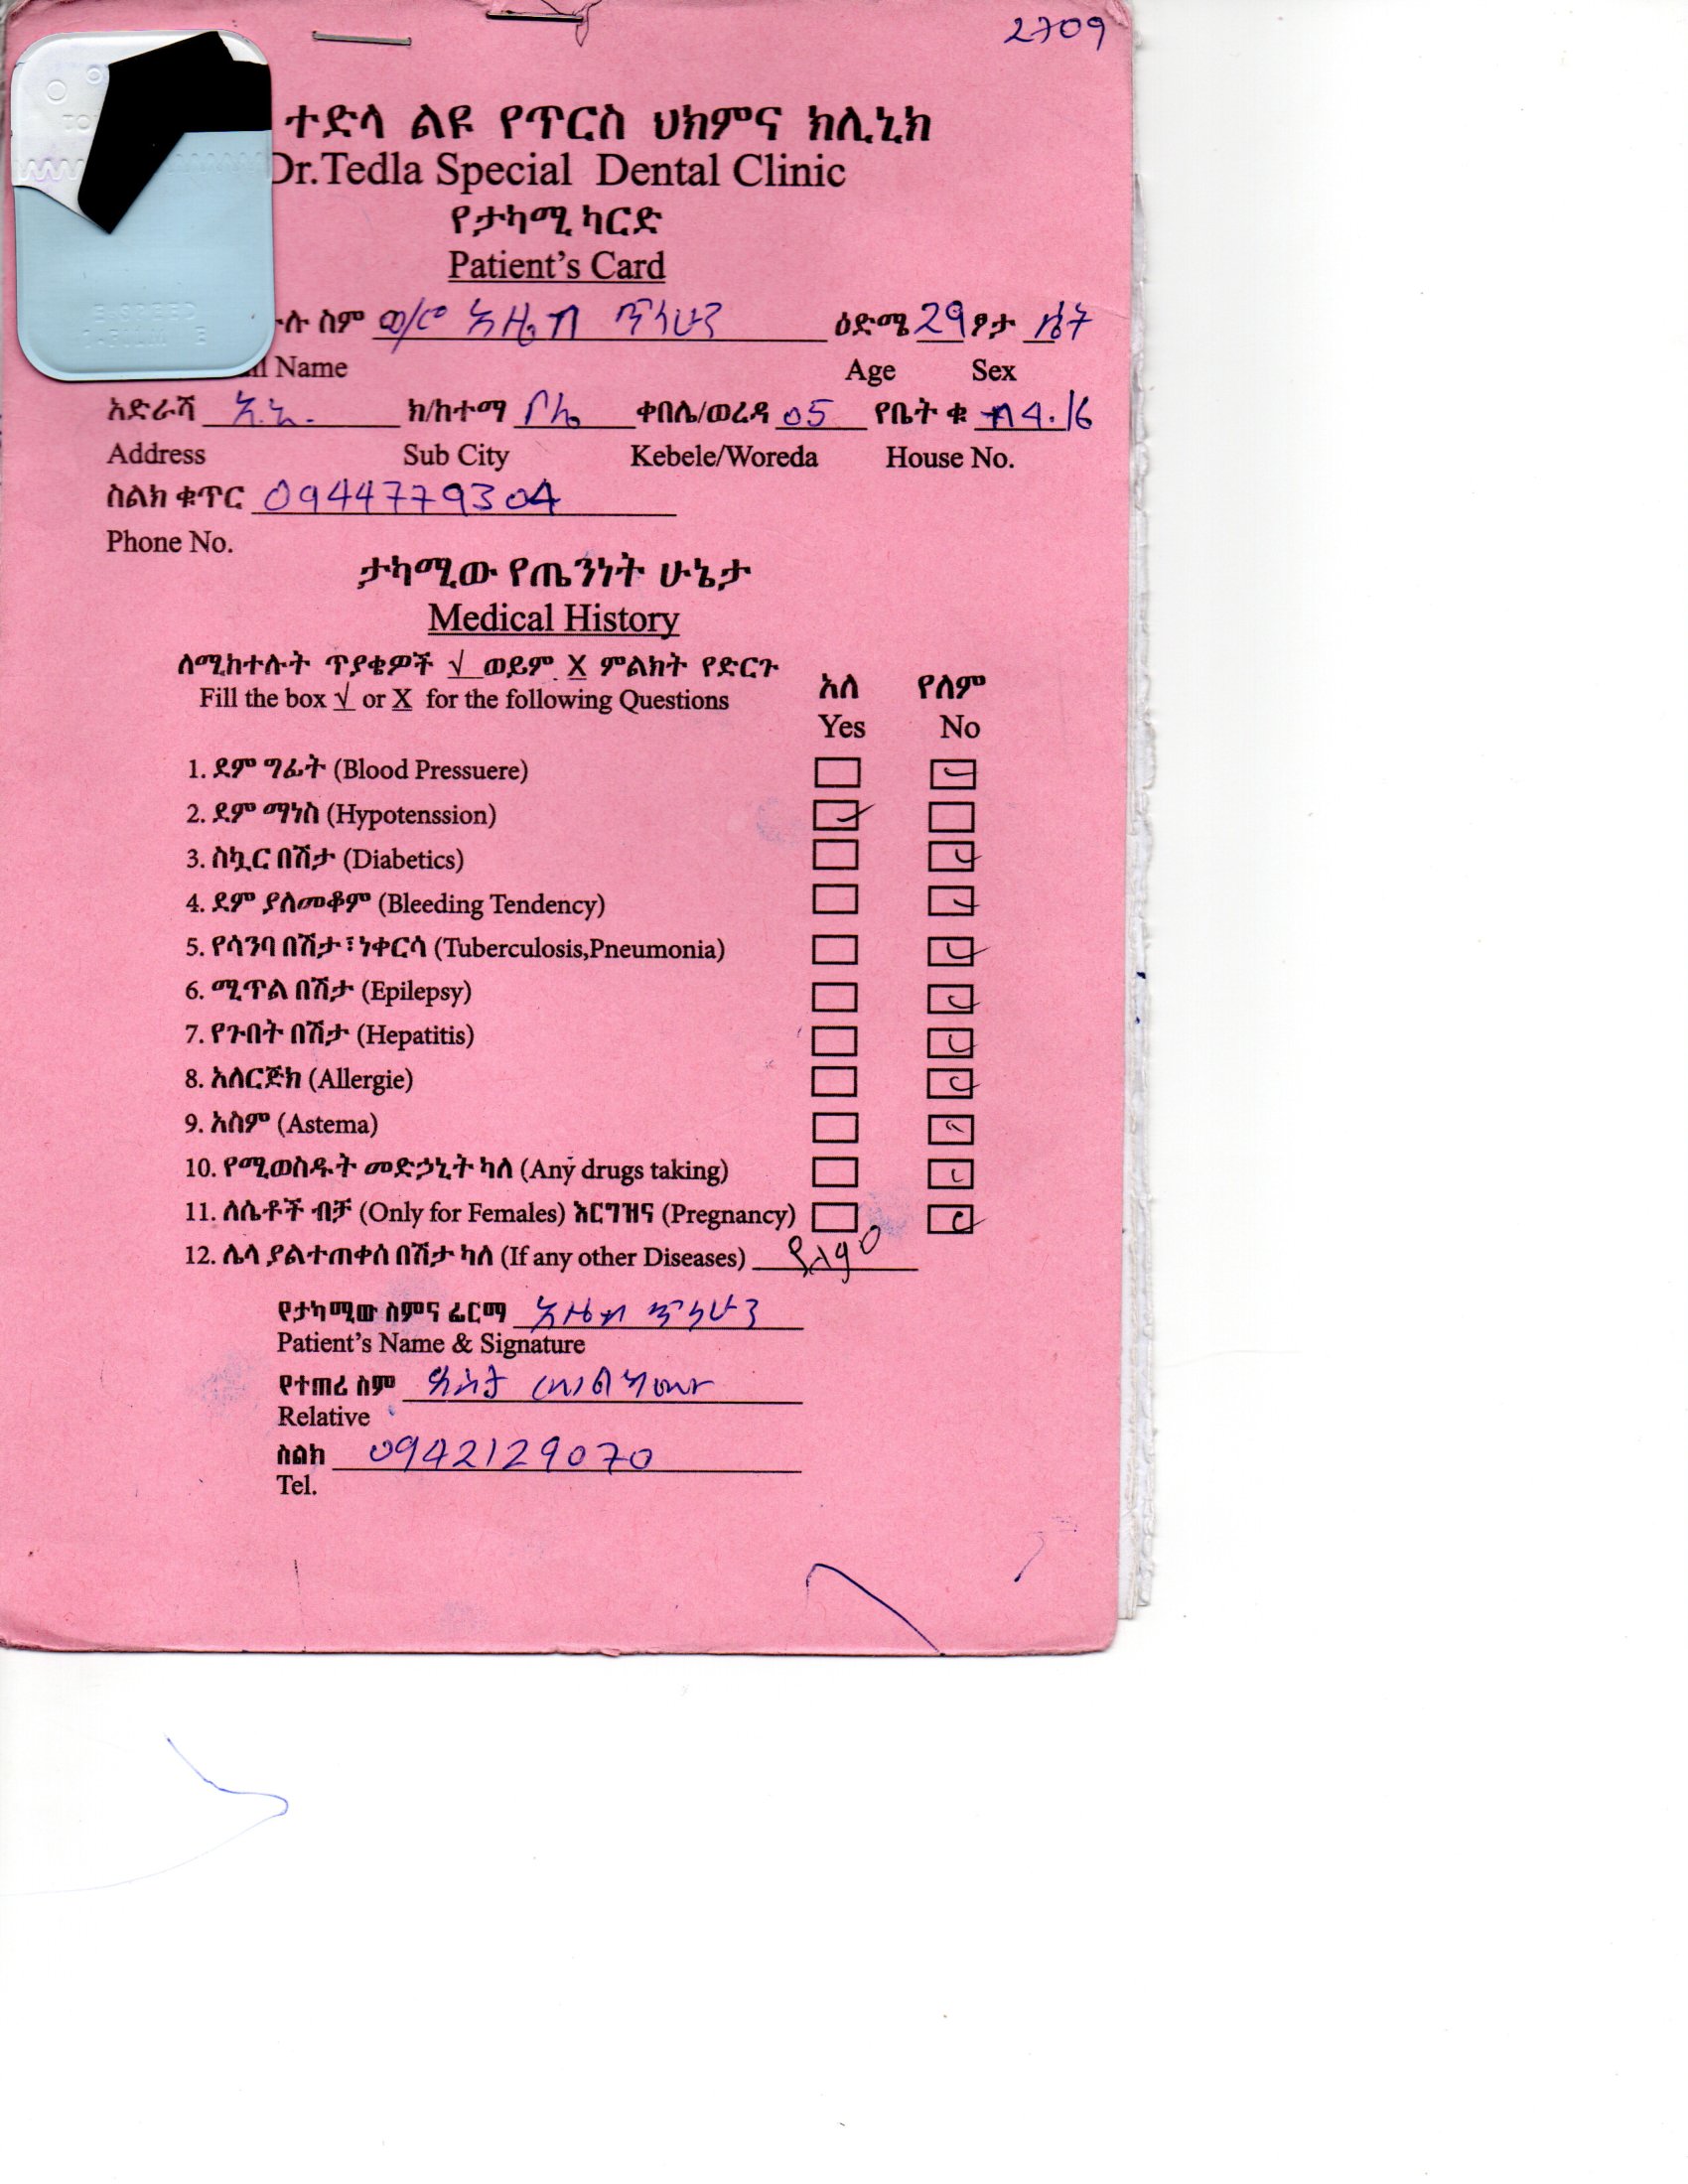 2709
ተድላ ልዩ የጥርስ ህክምና ክሊኒክ
Dr.Tedla Special Dental Clinic
የታካሚ ካርድ
Patient's Card
ሉ ስም ወ/ሮ አዜብ ጥላሁን ዕድሜ 29 ፆታ ሴት
Name Age Sex
አድራሻ አ.አ. ክ/ከተማ ቦሌ ቀበሌ/ወረዳ 05 የቤት ቁ
Address Sub City Kebele/Woreda House No.
ስልክ ቁጥር 0944779304
Phone No.
ታካሚው የጤንነት ሁኔታ
Medical History
ለሚከተሉት ጥያቄዎች √ ወይም X ምልክት የድርጉ
Fill the box √ or X for the following Questions
አለ የለም
Yes No
1. ደም ግፊት (Blood Pressuere)
2. ደም ማነስ (Hypotenssion)
3. ስኳር በሽታ (Diabetics)
4. ደም ያለመቆም (Bleeding Tendency)
5. የሳንባ በሽታ፣ ነቀርሳ (Tuberculosis,Pneumonia)
6. ሚጥል በሽታ (Epilepsy)
7. የጉበት በሽታ (Hepatitis)
8. አለርጅክ (Allergie)
9. አስም (Astema)
10. የሚወስዱት መድኃኒት ካለ (Any drugs taking)
11. ለሴቶች ብቻ (Only for Females) እርግዝና (Pregnancy)
12. ሌላ ያልተጠቀሰ በሽታ ካለ (If any other Diseases) የለም
የታካሚው ስምና ፊርማ አዜብ ጥላሁን
Patient's Name & Signature
የተጠሪ ስም
Relative
ስልክ 0942129070
Tel.